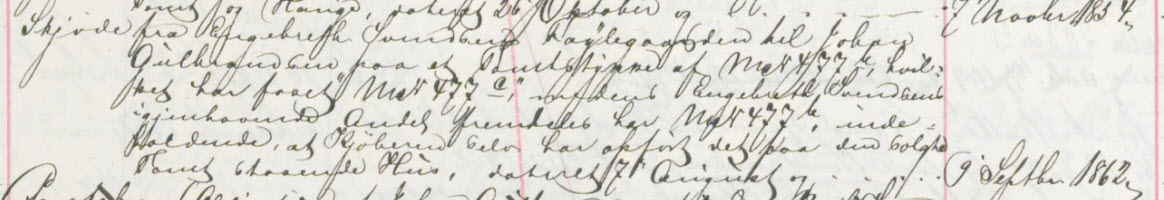 Tomt og Hauge, dateret 26' Oktober og . . . 7' Novbr. 1854.
Skjøde fra Engebreth Svendsen Løylegaarden til Johan
Gulbrandsen paa et Tomtestykke af Mat.№ 477 b, hvil-
ket har faaet Mat.№ 477 c, medens Engebreth Svendsens
igjenhavende Andel fremdeles har Mat.№ 477 b, inde-
holdende, at Kjøberen selv har opført det paa den solgte
Tomt staaende Huus, dateret 7' August og . . . . . 9' Septbr. 1862.